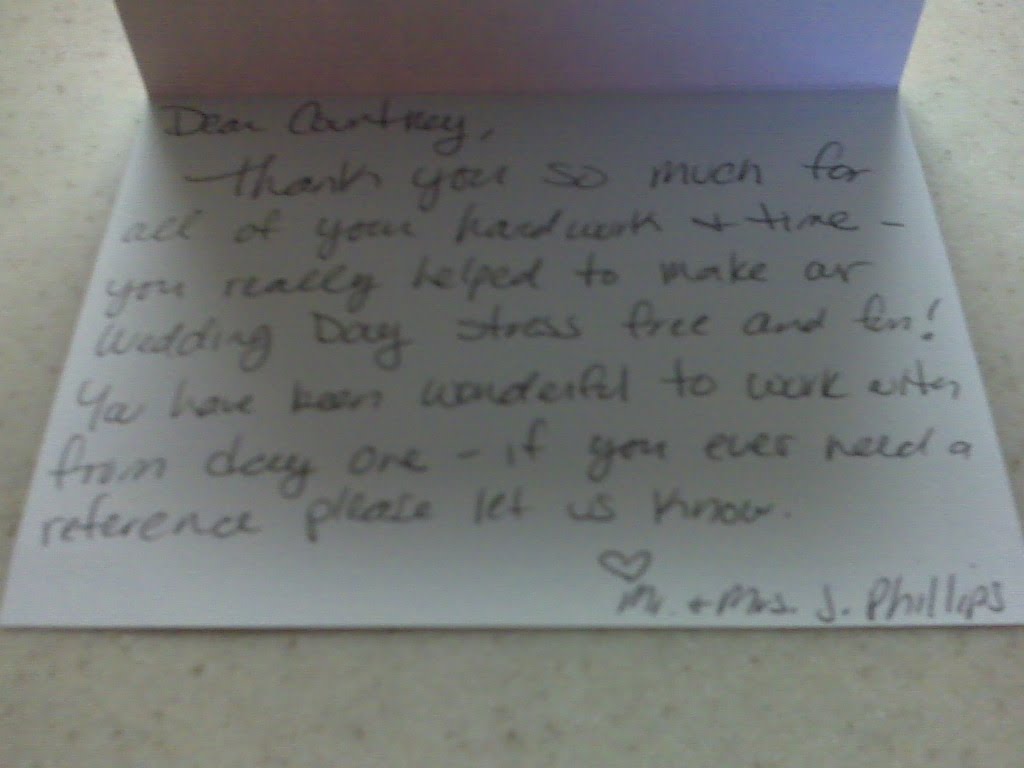 Dear Courtney,
Thank you so much for
all of your hardwork + time -
you really helped to make our
Wedding Day stress free and fun!
You have been wonderful to work with
from day one - if you ever need a
reference please let us know.
♡
Mr. + Mrs. J. Phillips